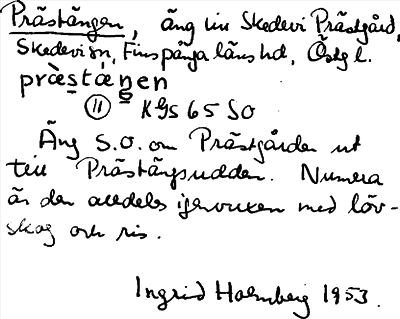 Prästängen, äng till Skedevi Prästgård,
Skedevi sn, Finspånga läns hd, Östg l.
præ̀stæ̀ŋen
(11) KGs 65 SO
Äng S.O. om Prästgården ut
till Prästängsudden. Numera
är den alldeles igenvuxen med löv-
skog och ris.
Ingrid Holmberg 1953.